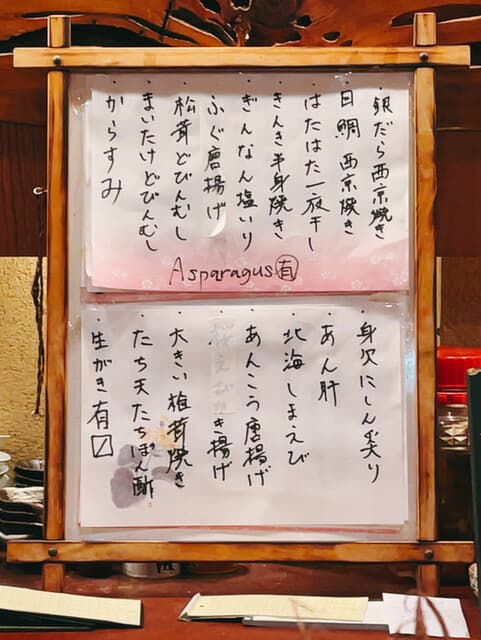 ・銀だら西京焼き
・目鯛西京焼き
・はたはた一夜干し
・きんき半身焼き
・ぎんなん塩いり
・ふぐ唐揚げ
・松茸どびんむし
・まいたけどびんむし
・からすみ
Asparagus 有
・身欠にしん炙り
・あん肝
・北海しまえび
・あんこう唐揚げ
・桜えびかき揚げ
・大きい椎茸焼き
・たち天たちぽん酢
・生がき有〼